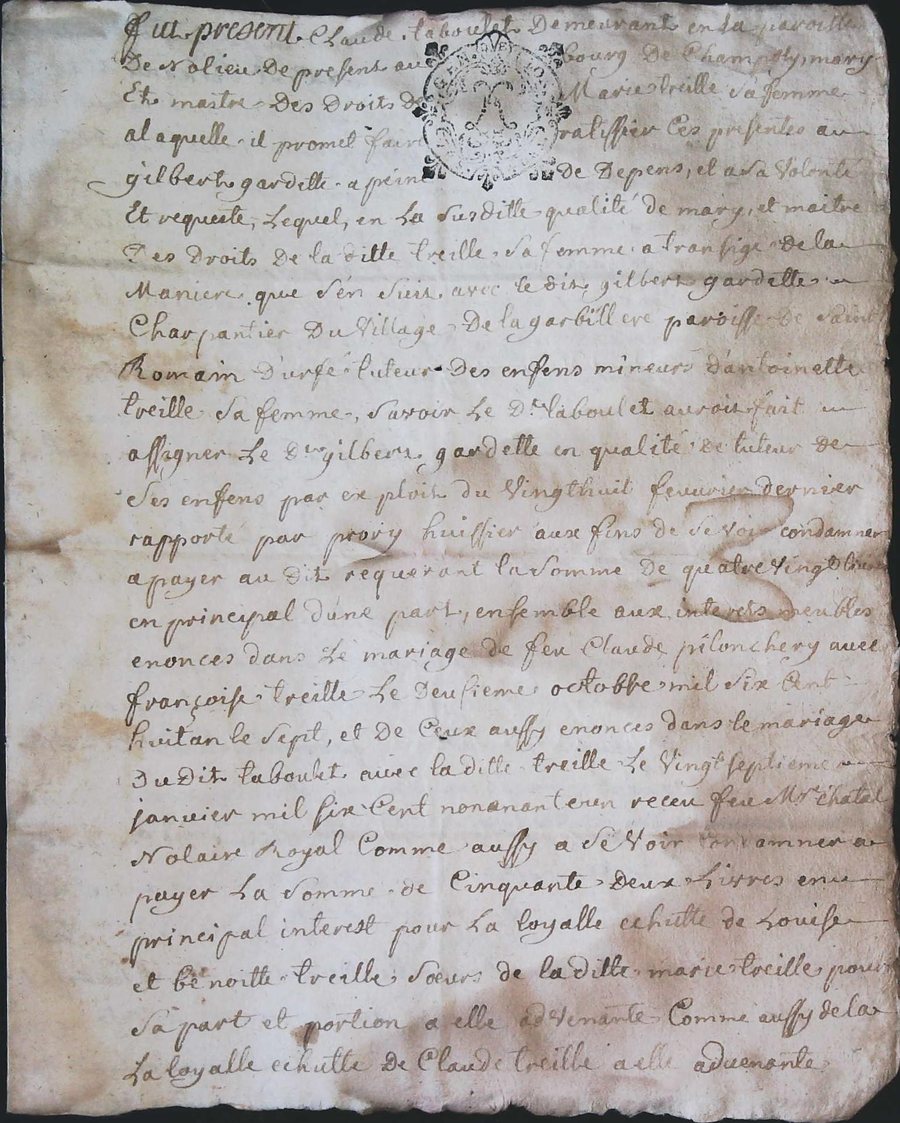 Fut present Claude taboulet Demeurant en la paroisse
De Nolieu De present au bourg De Champoly, mary
Et maitre Des Droits De Marie treille sa femme
a laquelle il promet faire ratiffier Ces presentes au
gilbert gardette a peine De Depens, et a sa Volonté
Et requeste, Lequel, en La susditte qualité de mary, et maitre
Des Droits De la ditte treille sa femme a transigé de la
Maniere que s'en suit avec le dit gilbert gardette
Charpantier Du Village De la garbillere paroisse De saint
Romain D'urfé tuteur Des enfens mineurs d'antoinette
treille sa femme, savoir Le Dt taboulet auroit fait
assigner Le Dit gilbert gardette en qualité De tuteur De
Ses enfens par exploit du Vingthuit fevurier dernier
rapporté par prory huissier aux fins de se voir condamner
a payer au dit requerant la somme De quatre Vingt livres
en principal d'une part, ensemble aux interets meubles
enonces dans Le mariage de feu Claude pilonchery avec
françoise treille Le Deusieme octobre mil six Cent
huitante sept, et De Ceux aussy enonces dans le mariage
Du Dit taboulet avec la ditte treille Le Vingt septieme
janvier mil six Cent nonananteun receu feu Mre chatal
Notaire Royal Comme aussy a se Voir condamner a
payer La somme de Cinquante Deux Livres en
principal interest pour La loyalle echutte de Louise
et benoitte treille sœurs de la ditte marie treille pour
sa part et portion a elle advenante Comme aussy de la
La loyalle echutte De Claude treille a elle aduenante